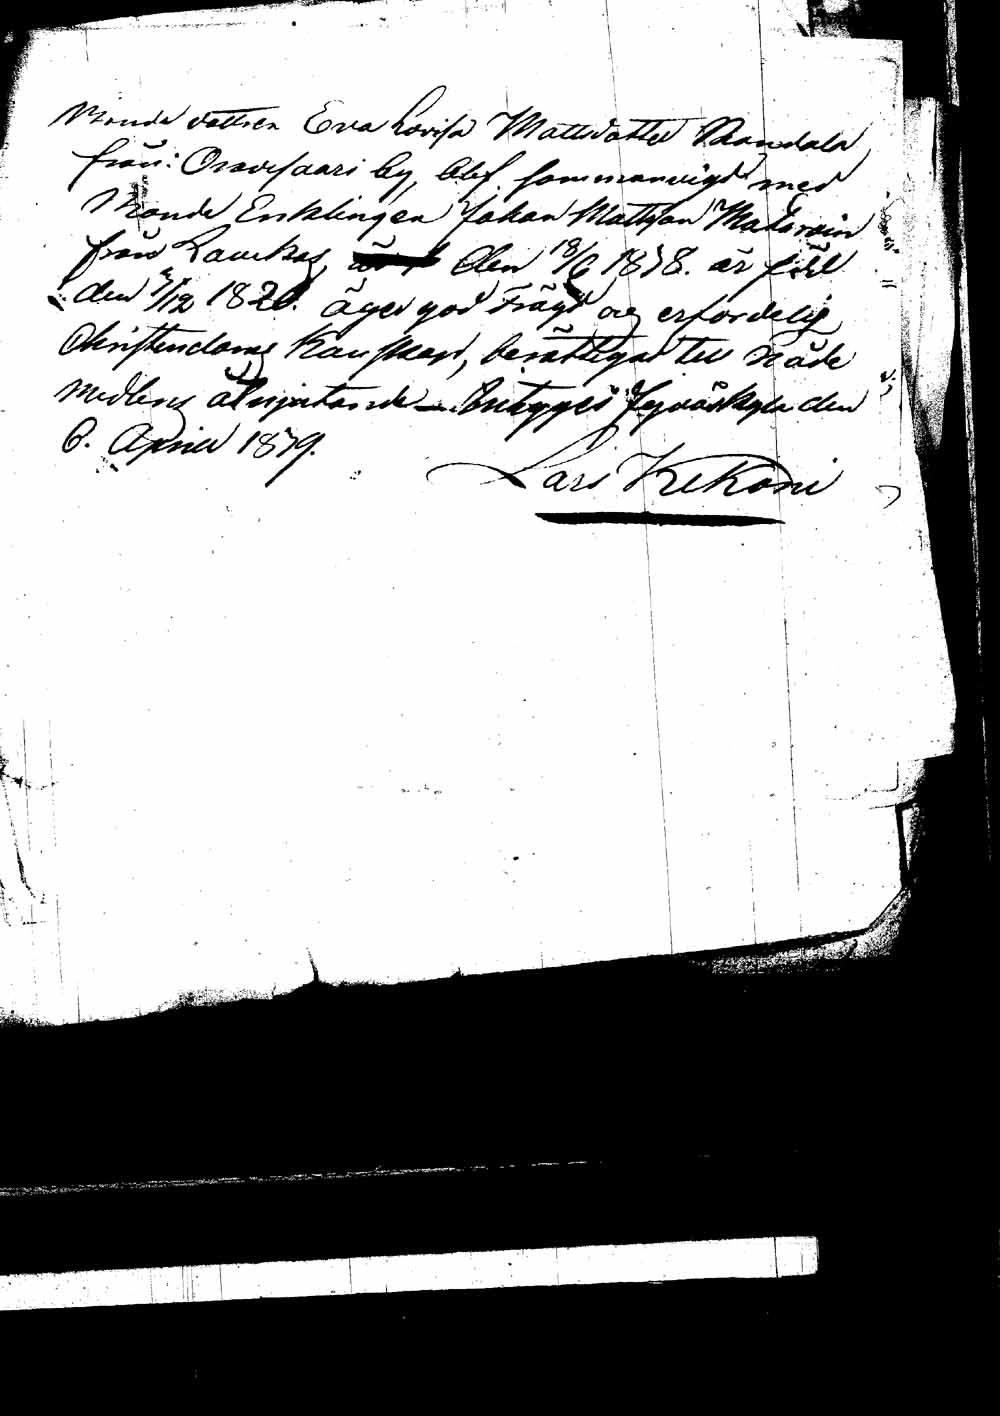 Bonde dottren Eva Lovisa Mattsdotter Randala
från: Oravisaari by, blef sammanvigd med
Bonde Enklingen Johan Mattson
från Laukas, den 18/6 1878. är född
den 7/12 1820. äger god frägd og erfordelig
Christendoms Kunskap, berättigad till Nåde
medlens åtnjutande — intygges Jyväskylä den
6. April 1879.
Lars Kekoni